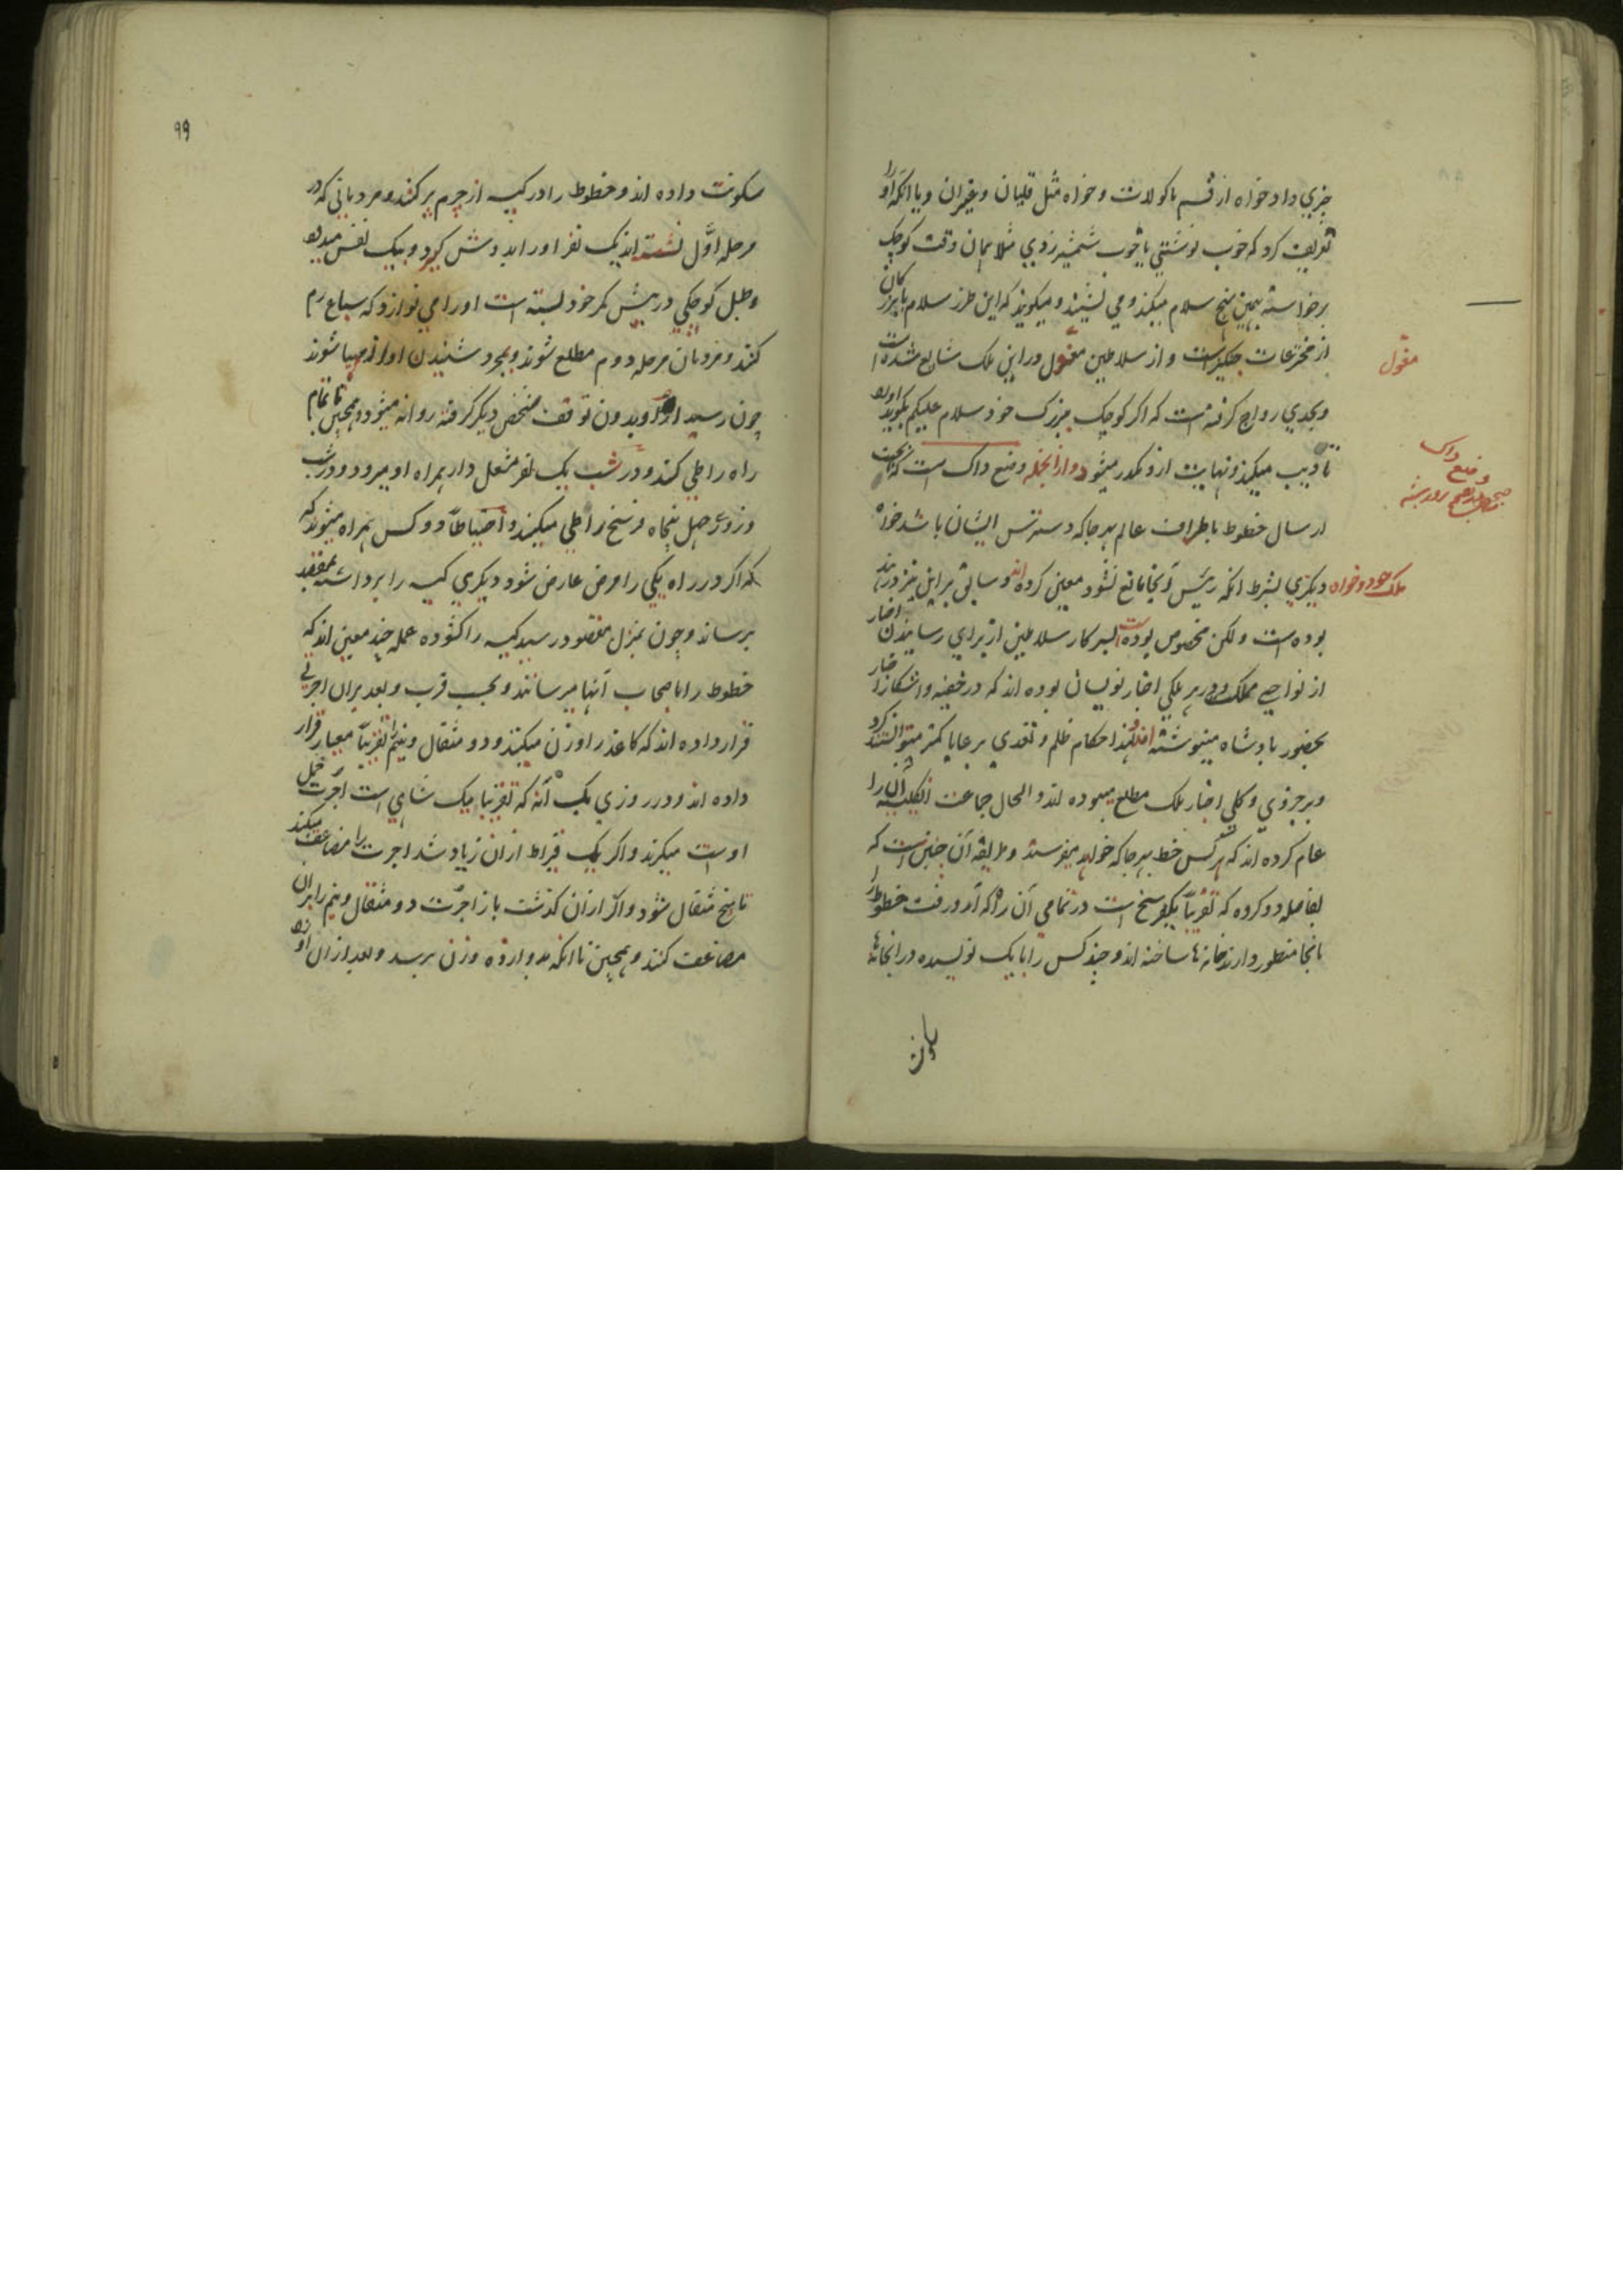 چیزي داد خواه از قسم ماکولات و خواه مثل قلیان و غیران و یا انکه او را
تعریف کرد که خوب نوشتني یا خوب شمشیر زدي مثلا بمان وقت کوچک
برخواسته بهمین نهج سلام میکند و مي نشیند و میکویند که این طرز سلام با بزرکان
از مخترعات چنکیز است و از سلاطین مغول در این ملک شایع شده است
و بحدي رواج کرفته است که اکر کوچک ببزرک خود سلام علیکم بکوید او را
تادیب میکنند و نهایت ازو مکدر میشود و از آنجمله وضع داک است که بجهت
ارسال خطوط باطراف عالم بهر جا که دسترس ایشان باشد خواه
ملک خود و خواه دیکري بشرط انکه رئیس آنجا مانع نشود معین کرده اند و سابق بر این نیز در هند
بوده است و لکن مخصوص بوده است بسرکار سلاطین از براي رسانیدن اخبار
از نواحي مملکت و در هر ملکي اخبار نویسان بوده اند که در خفیه و اشکارا اخبار
بحضور پادشاه مینوشته اند و لهذا حکام ظلم و تعدي برعایا کمتر میتوانستند کرد
و بر جزوي و کلي اخبار ملک مطلع میبوده اند و الحال جماعت انکلیسیه آن را
عام کرده اند که هر کس خط بهر جا که خواهد میفرستد و طریقه آن چنین است که
بفاصله دو کروه که تقریباً یکفرسخ است در تمامي آن راه که آمد و رفت خطوط را
بانجا منظور دارند خانه ها ساخته اند و چند کس را با یک نویسنده در انخانها
مغول
وضع داک
سکونت داده اند و خطوط را در کیسه از چرم پر کنند و مردماني که در
مرحله اول نشسته اند یک نفر او را بدوش کیرد و بیک نفس میدود
و طبل کوچکي در پیش کمر خود بسته است او را مي نوازد که سباع رم
کنند و مردمان مرحله دوم مطلع شوند و بمجرد شنیدن اواز مهیا شوند
چون رسید او را بدون توقف شخص دیکر کرفته روانه میشود و همچنین تا تمام
راه را طي کنند و در شب یک نفر مشعل دار همراه او میرود و در شب
و روز چهل پنجاه فرسخ را طي میکنند و احتیاطاً دو کس همراه میشوند که
که اکر در راه یکي را مرض عارض شود دیکري کیسه را برداشته بمقصد
برساند و چون بمنزل مقصود رسید کیسه را کشوده عمله چند معین اند که
خطوط را باصحاب آنها میرسانند و بحسب قرب و بعد بران اجرتي
قرار داده اند که کاغذ را وزن میکنند و دو مثقال و نیم را تقریباً معیار قرار
داده اند و در روزي یک آنه که تقریبا یک شاهي است اجرت حمل
اوست میکیرند و اکر یک قیراط از ان زیاد شد اجرت را مضاعف میکنند
تا پنج مثقال شود و اکر از ان کذشت باز اجرت دو مثقال و نیم را بران
مضاعف کنند و همچنین تا انکه بدوازده وزن برسد و بعد از ان او را
۹۹